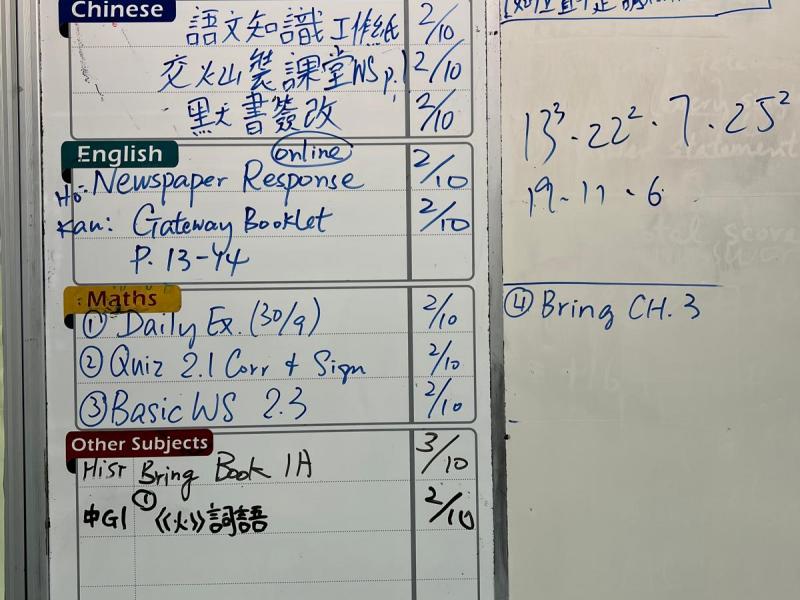 Chinese
語文知識工作紙 2/10
交火山裝課堂WS p.1 2/10
默書簽改 2/10
English online
Ho: Newspaper Response 2/10
Kan: Gateway Booklet 2/10
P. 13-44
Maths
① Daily Ex. (30/9) 2/10
② Quiz 2.1 Corr + Sign 2/10
③ Basic WS 2.3 2/10
Other Subjects
Hist Bring Book 1A 3/10
中G1 ① 《火》詞語 2/10
13³ · 22² · 7 · 25²
19 · 11 · 6
④ Bring CH. 3